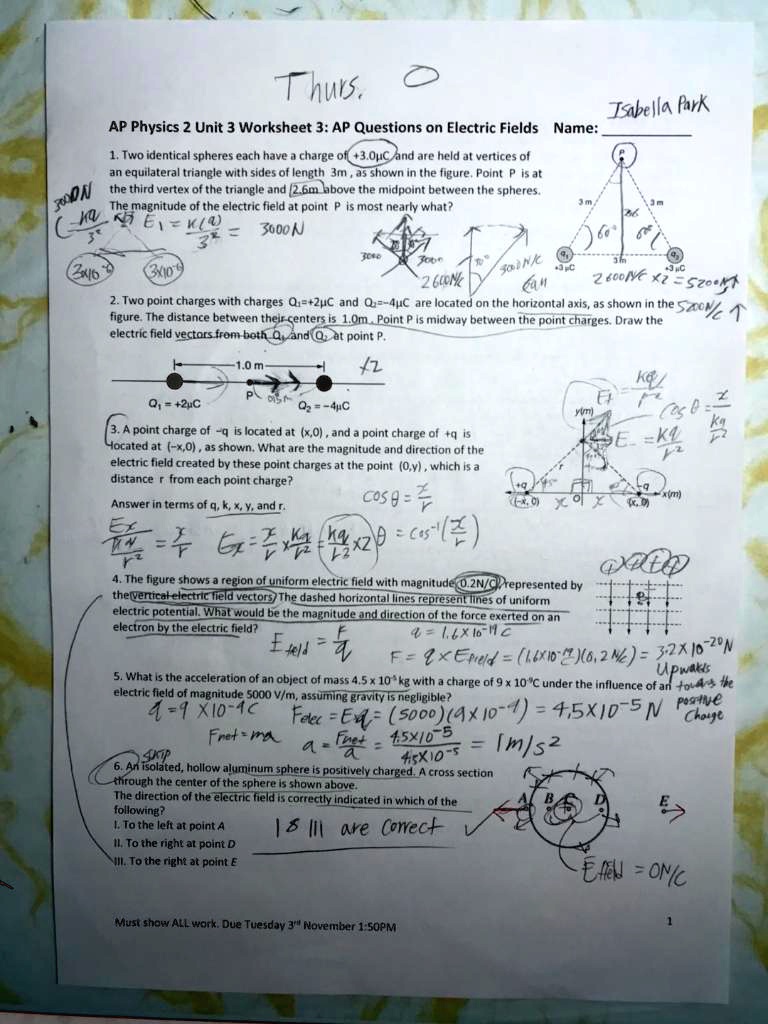 Thurs. O
Isabella Park
AP Physics 2 Unit 3 Worksheet 3: AP Questions on Electric Fields Name:
1. Two identical spheres each have a charge of +3.0μC and are held at vertices of
an equilateral triangle with sides of length 3m , as shown in the figure. Point P is at
the third vertex of the triangle and 2.6m above the midpoint between the spheres.
The magnitude of the electric field at point P is most nearly what?
P
3 m 3 m
60° 60°
q₁ 3m q₂
+3μC +3μC
E₁ = k(q)/3² = 3000N
3x10⁻⁶ 3x10⁻⁶
3000 3000
30° 3000N/C
2600N/C
2600N/C x2 = 5200N
5200N/C ↑
2. Two point charges with charges Q₁=+2μC and Q₂=−4μC are located on the horizontal axis, as shown in the
figure. The distance between their centers is 1.0m . Point P is midway between the point charges. Draw the
electric field vectors from both Q₁ and Q₂ at point P.
1.0 m
P 0.5m
Q₁ = +2μC Q₂ = −4μC
3. A point charge of −q is located at (x,0) , and a point charge of +q is
located at (−x,0) , as shown. What are the magnitude and direction of the
electric field created by these point charges at the point (0,y) , which is a
distance r from each point charge?
Answer in terms of q, k, x, y, and r.
y(m)
E+ = kq/r²
E- = kq/r²
r
+q −q
(−x, 0) x O x (x, 0) x(m)
cos θ = x/r
Ex/(kq/r²) = x/r Ex = x/r x kq/r² = kq/r² x2 θ = cos⁻¹(x/r)
4. The figure shows a region of uniform electric field with magnitude 0.2N/C, represented by
the vertical electric field vectors. The dashed horizontal lines represent lines of uniform
electric potential. What would be the magnitude and direction of the force exerted on an
electron by the electric field?
+ + + +
E field = F/q
q = 1.6 x 10⁻¹⁹ C
F = q x Efield = (1.6x10⁻¹⁹C)(0.2 N/C) = 3.2 x 10⁻²⁰ N
Upwards
towards the
positive
charge
5. What is the acceleration of an object of mass 4.5 x 10⁻⁵ kg with a charge of 9 x 10⁻⁹C under the influence of an
electric field of magnitude 5000 V/m, assuming gravity is negligible?
q = 9 x10⁻⁹C Felec = Eq = (5000)(9 x 10⁻⁹) = 4.5x10⁻⁵ N
Fnet = ma a = Fnet/a = 4.5x10⁻⁵/4.5x10⁻⁵ = 1m/s²
SKIP
6. An isolated, hollow aluminum sphere is positively charged. A cross section
through the center of the sphere is shown above.
The direction of the electric field is correctly indicated in which of the
following?
I. To the left at point A
II. To the right at point D
III. To the right at point E
I & III are correct
A B C D E
E field = 0N/C
Must show ALL work. Due Tuesday 3rd November 1:50PM 1